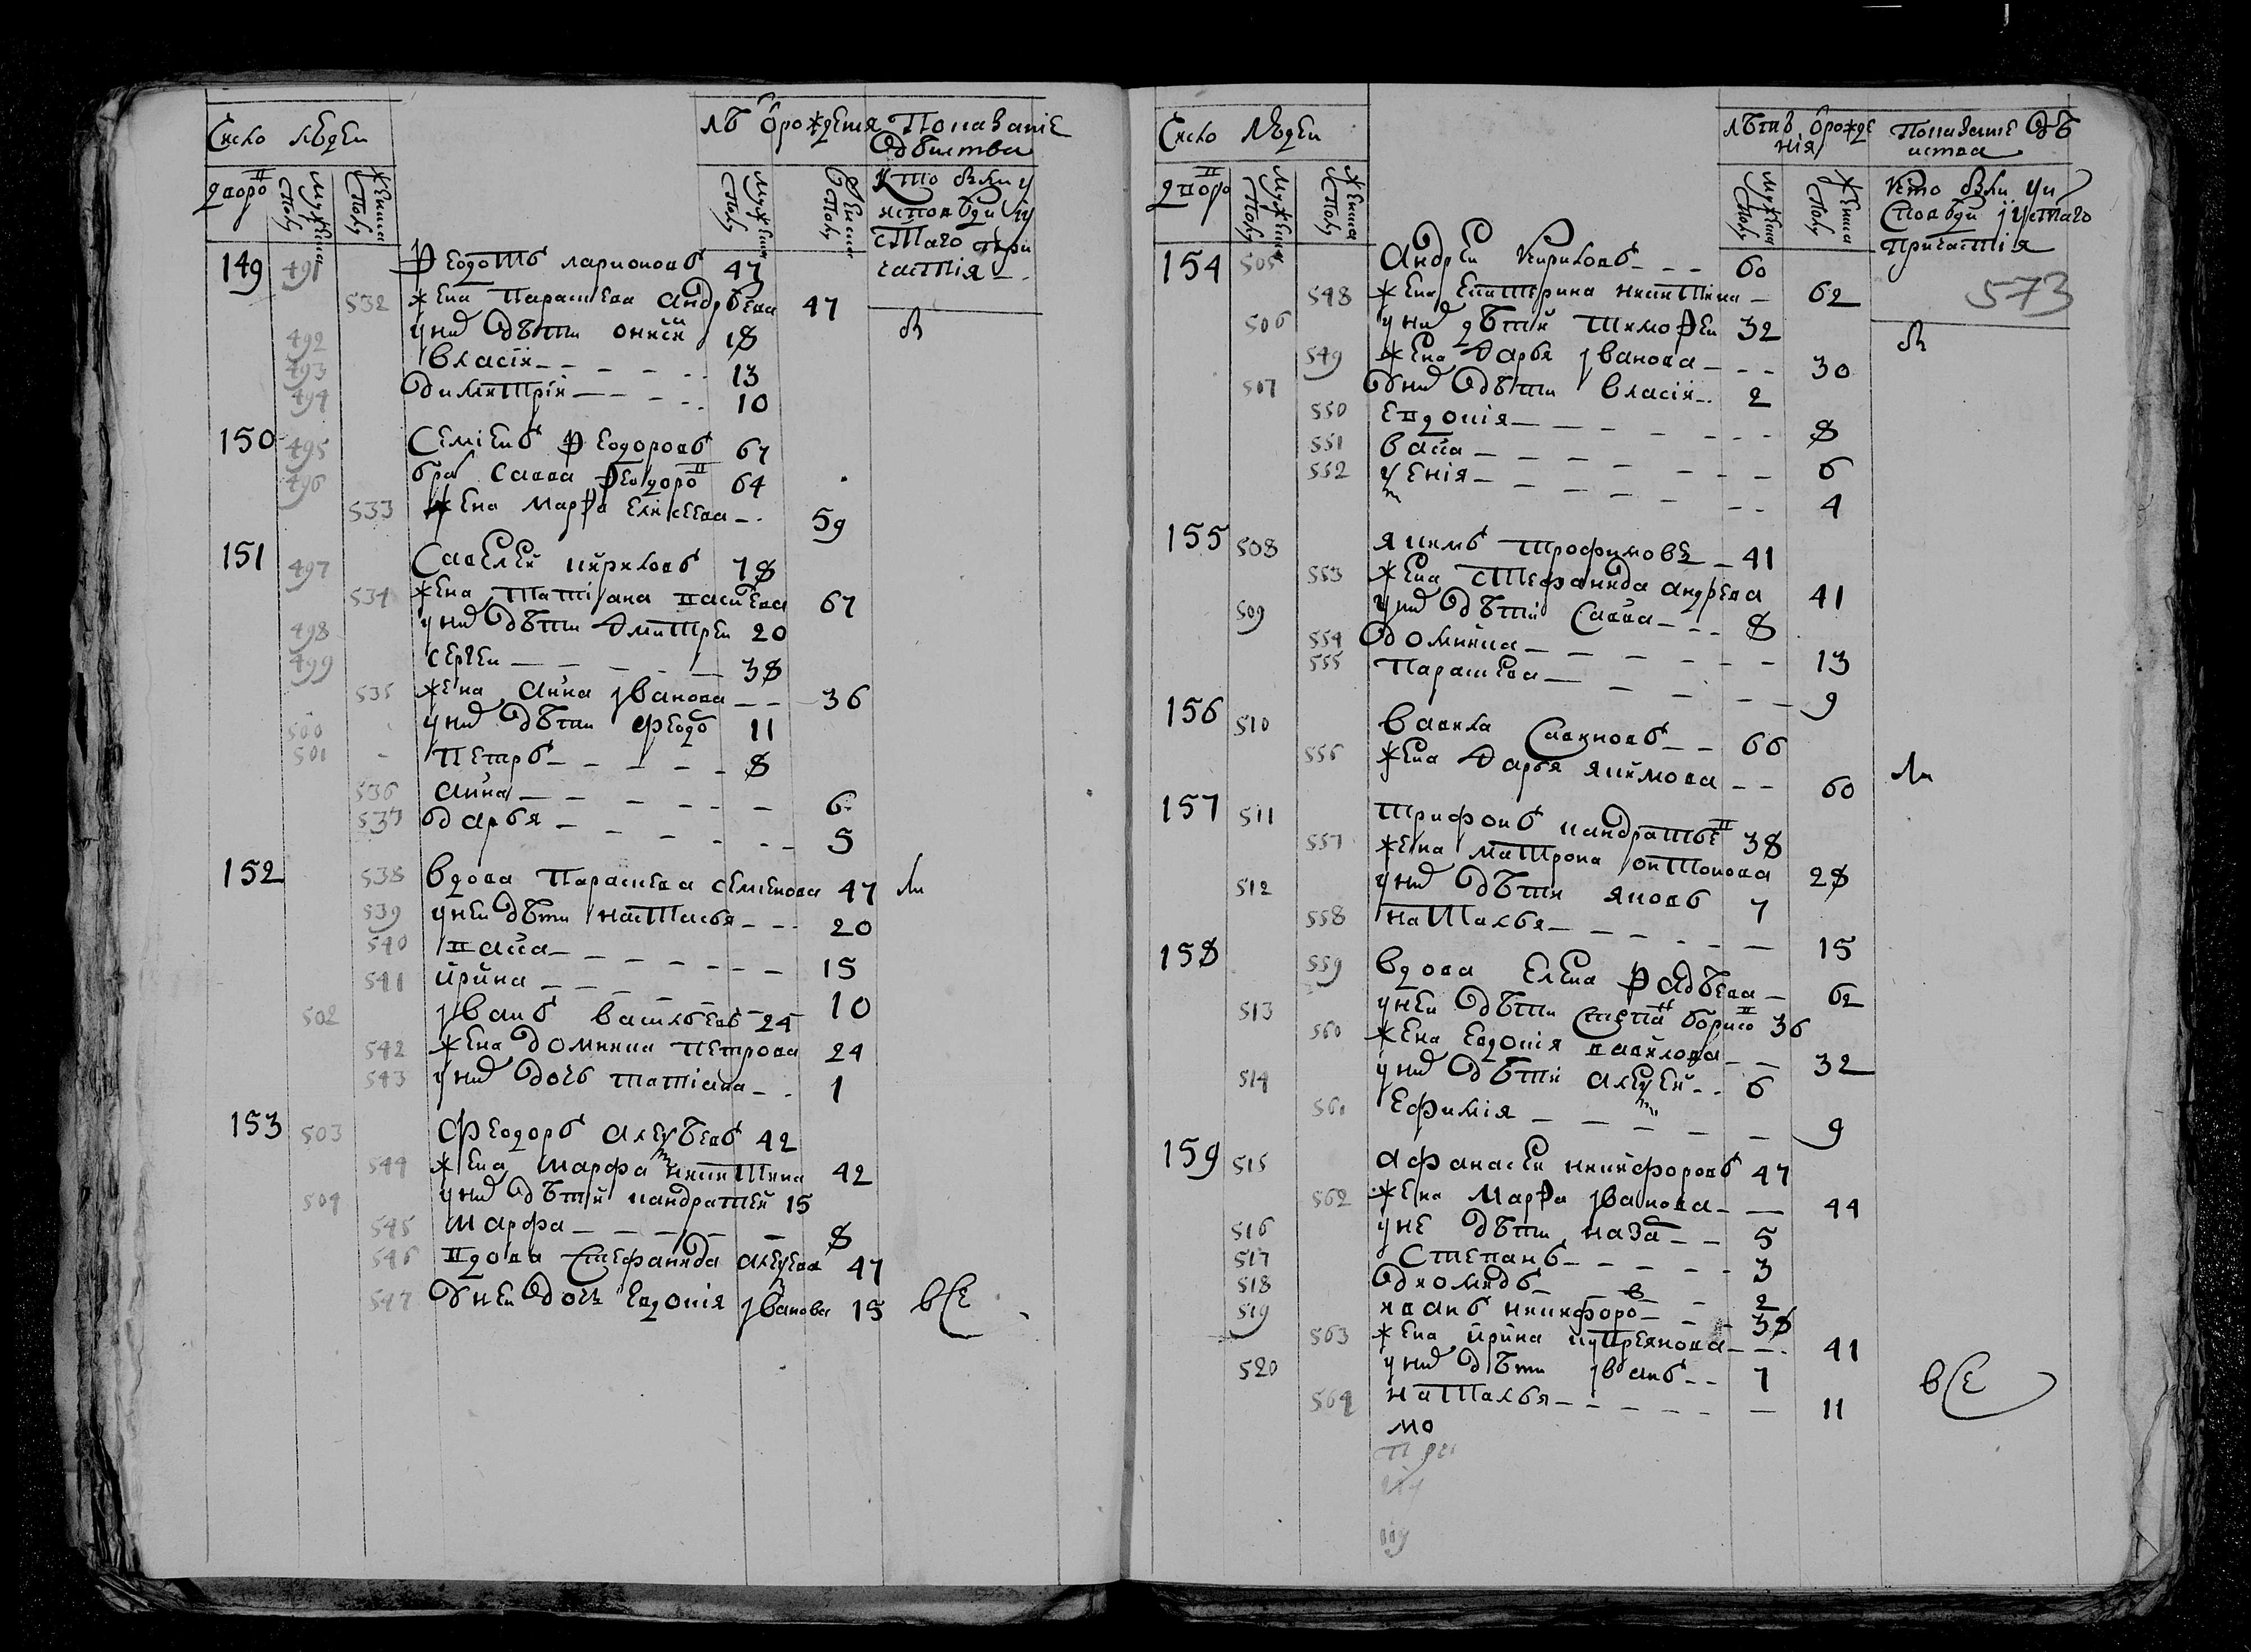 Число людей
лѣ ѿ рождения
Показание
Действа
дворов
Мужеска
Полу
Женска
Полу
Мужеска
Полу
Женска
Полу
Кто были у
исповѣди и у
святаго при
частія
149 491 Ѳеодотъ ларионовъ 47
532 жена Парасчева андрѣева 47
492 у них дѣти 18
493 Власій 13
494 димитрій 10
150 495 Семіенъ Ѳеодоровъ 67
496 братъ Савва Ѳеодоров 64
533 жена марѳа елисеева 59
151 497 Савелей кириловъ 78
534 жена татіана 67
498 у них дѣти дмитреи 20
499 сергеи 38
535 жена анна іванова 36
500 у них дѣти феодо 11
501 петръ 8
536 анна 6
537 дарья 5
152 538 вдова Парасчева семенова 47
539 у неи дѣти настасья 20
540 15
541 ирина 10
502 іванъ васильевъ 24
542 жена домникиа петрова 24
543 у них дочь татіана 1
153 503 феодоръ алексѣевъ 42
544 жена марфа никитина 42
504 у них дѣти кандратей 15
545 марфа 8
546 вдова стефанида алексеева 47
547 у неи дочь евдокия іванова 15
все
Число людей
лѣтъ ѿ рожде
нія
Показание дѣ
иства
дворов
Мужеска
Полу
Женска
Полу
Мужеска
Полу
Женска
Полу
Кто были у и
споведи и у святаго
Причастія
573
154 505 Андреи Кириловъ 60
548 жена екатерина никитина 62
506 у них дѣти тимоѳеи 32
549 жена дарья іванова 30
507 у них дѣти власій 2
550 евдокія 8
551 6
552 4
155 508 якимъ трофимовъ 41
553 жена стефанида андреева 41
509 у них дѣти савва 8
554 домникиа 13
555 Парасчева 9
156 510 вавила Савиновъ 66
556 жена дарья якимова 60
157 511 трифонъ кандратьев 38
557 жена матрона антонова 28
512 у них дѣти яковъ 7
558 наталья 15
158 559 вдова елена ѳадѣева 62
513 у неи дѣти степан борисов 36
560 жена евдокія вавилова 32
514 у них дѣти алексей 6
561 ефимія 9
159 515 афанасеи никифоровъ 47
562 жена марѳа іванова 44
516 у не дѣти наза 5
517 степанъ 3
518 диомидъ 2
519 иванъ никифоров 38
563 жена ирина куприянова 41
520 у них дѣти іванъ 7
564 наталья 11
все
мо